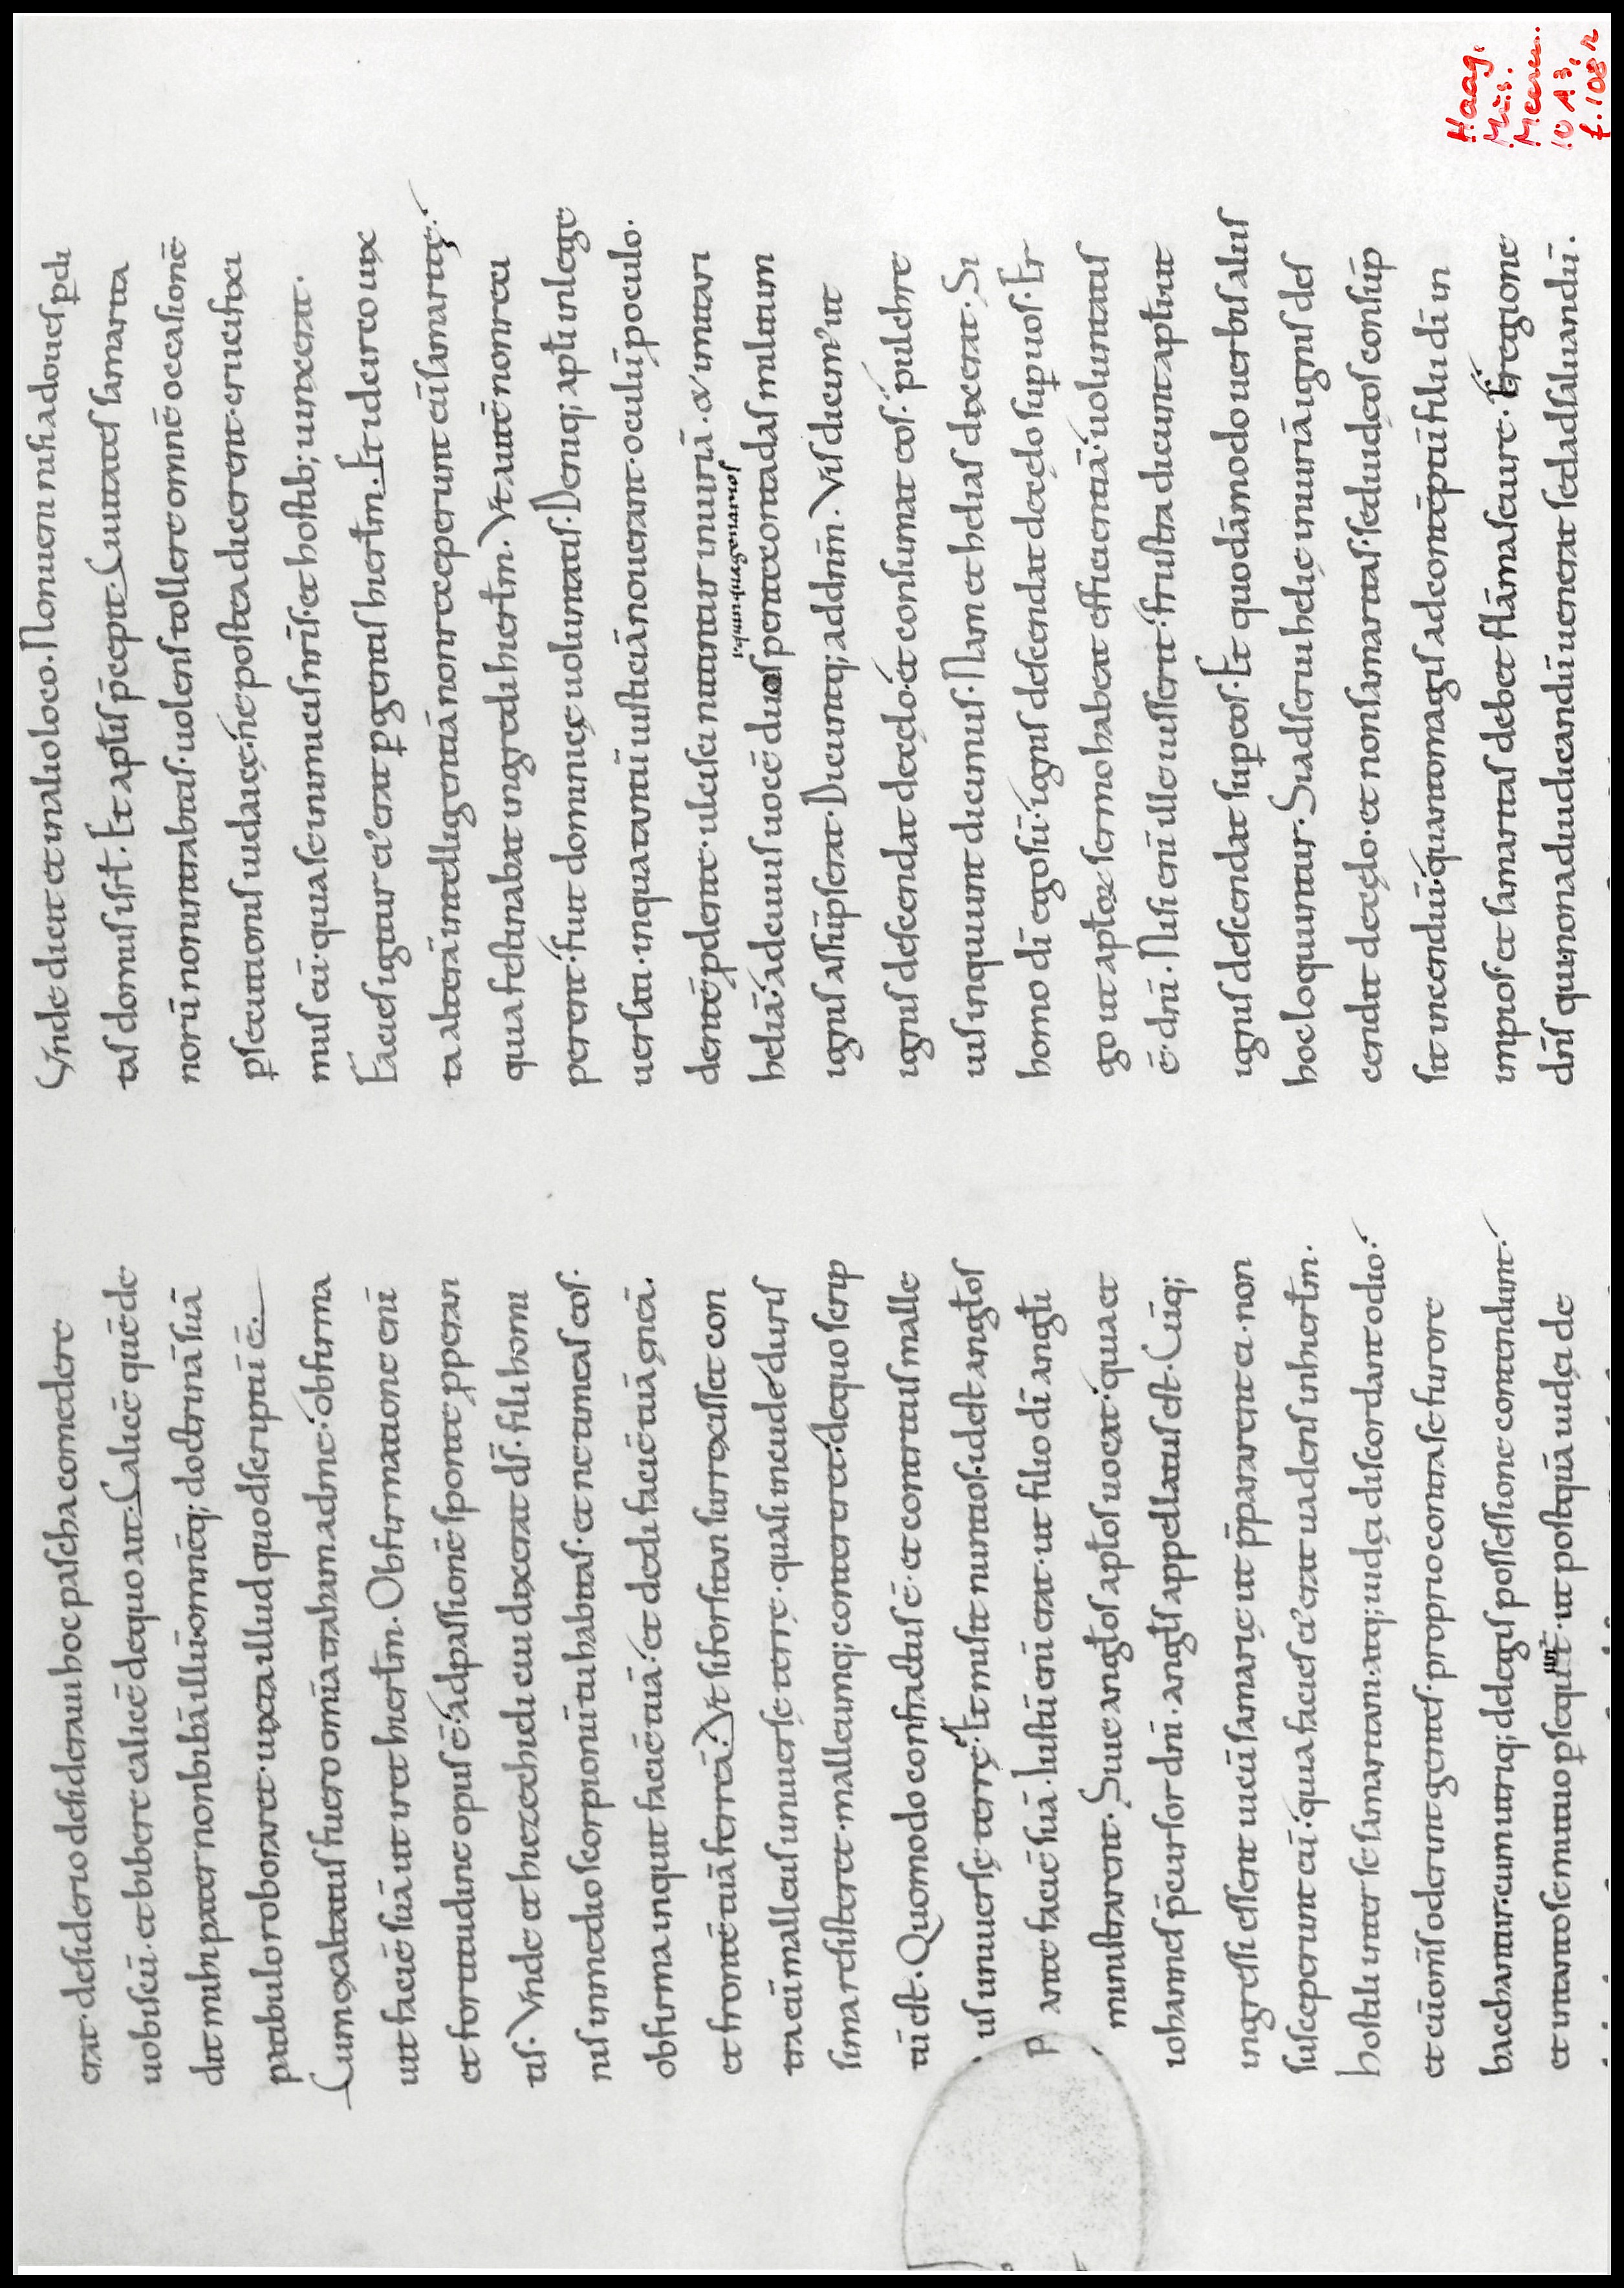 erat· desiderio desideraui hoc pascha comedere
uobiscū· et bibere calicē de quo ait· Calicē quē de
dit mihi pater non bibā illū· omnēq; doctrinā suā
patibulo roboraret· iuxta illud quod scriptū ē·
Cum exaltatus fuero omīa traham ad me· obfirma
uit faciē suā ut iret hierłm· Obfirmatione enī
et fortitudine opus ē· ad passionē sponte pperan
tis· Vnde et hiezechieli cui dixerat ds̄· fili homi
nis in medio scorpionū tu habitas· et ne timeas eos·
obfirma inquit faciē tuā· et dedi faciē tuā ęneā·
et frontē tuā ferreā· Vt si forsitan surrexisset con
tra eū malleus uniuersę terrę· quasi incude duris
sima resisteret· malleumq; contereret· de quo scrip
tū est· Quomodo confractus ē· et contritus malle
us uniuersę terrę· Et misit nuntios· id est angłos
ante faciē suā· Iustū enī erat· ut filio dī angłi
ministrarent· Siue angłos apłos uocat· quia et
iohannes p̄cursor dnī· angłs appellatus est· Cūq;
ingressi essent uicū samarię ut p̄pararent ei· non
susceperunt eū· quia facies ei' erat uadens in hierłm·
Hostili inter se samaritani· atq; iudęi discordant odio·
et cū om̄s oderint gentes· proprio contra se furore
bacchantur· cum utriq; de legis possessione contendunt·
et in tanto se mutuo psequt̄· ut postquā iudęi de
Inde dicit et in alio loco· Non ueni nisi ad oues pdi
tas domus isrł· Et apłis p̄cepit· Ciuitates samarita
norū non intrabitis· uolens tollere omnē occasionē
psecutionis iudaicę· ne postea dicerent· crucifixi
mus eū· quia se inimicis nr̄is· et hostib; iunxerat·
Facies igitur ei' erat pgentis hierłm· Et idcirco iux
ta alterā intellegentiā non receperunt eū samaritę·
quia festinabat ingredi hierłm· Vt autē non reci
perent· fuit dominicę uoluntatis· Deniq; apłi in lege
uersati· in qua tantū iusticiā nouerant· oculū p oculo·
dentē p dente· ulcisci nituntur iniuriā· & imitari
uel quinquagenarios
heliā· ad cuius uocē duos pentecontadas militum
ignis assūpserat· Dicuntq; ad dnm̄· Vis dicim' ut
ignis descendat de cęlo· et consumat eos· pulchre
uis inquiunt dicimus· Nam et helias dixerat· Si
homo dī ego sū· ignis descendat de cęlo sup uos· Er
go ut aptor sermo habeat efficientiā· uoluntatis
ē· dnī· Nisi enī ille iusserit· frustra dicunt apłi ut
ignis descendat sup eos· Et quodāmodo uerbis aliis
hoc loquuntur· Si ad serui helię iniuriā ignis des
cendit de cęlo· et non samaritas· sed iudęos consūp
sit incendiū· quanto magis ad contēptū filii dī in
impios et samaritas debet flāma seuire· Et e regione
dn̄s qui non ad iudicandū uenerat sed ad saluandū·
Haag.
Mus.
Meerm.
10 A 3,
f. 108 r